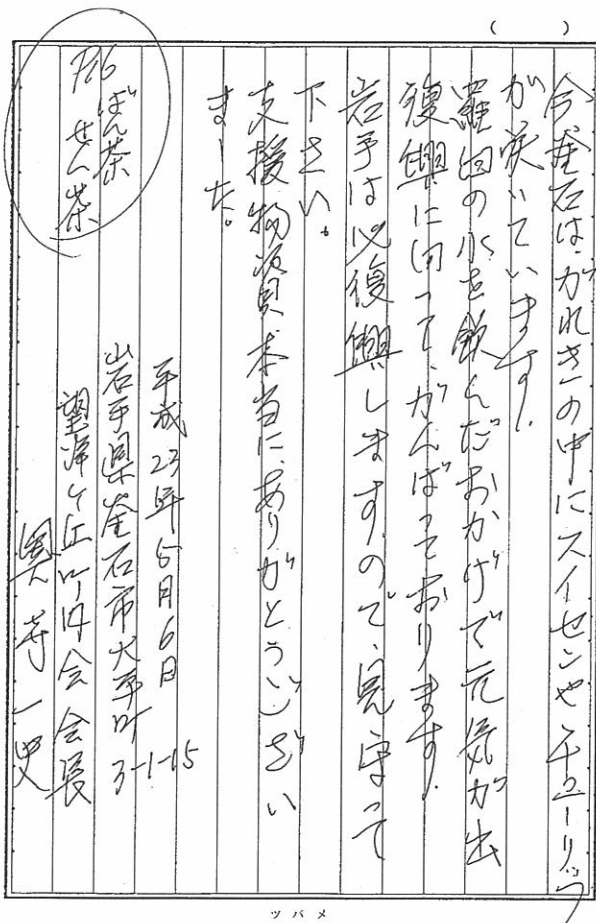 今釜石は、がれきの中にスイセンやチューリップ
が咲いています。
羅臼の水を飲んだおかげで元気が出
復興に向って、がんばっております。
岩手は必復興しますので、見守って
下さい。
支援物資、本当に、ありがとうござい
ました。
平成23年5月6日
岩手県釜石市大平町
3-1-15
望洋ヶ丘町内会 会長
一史
P16
ばん茶
せん茶
(    )
ツバメ